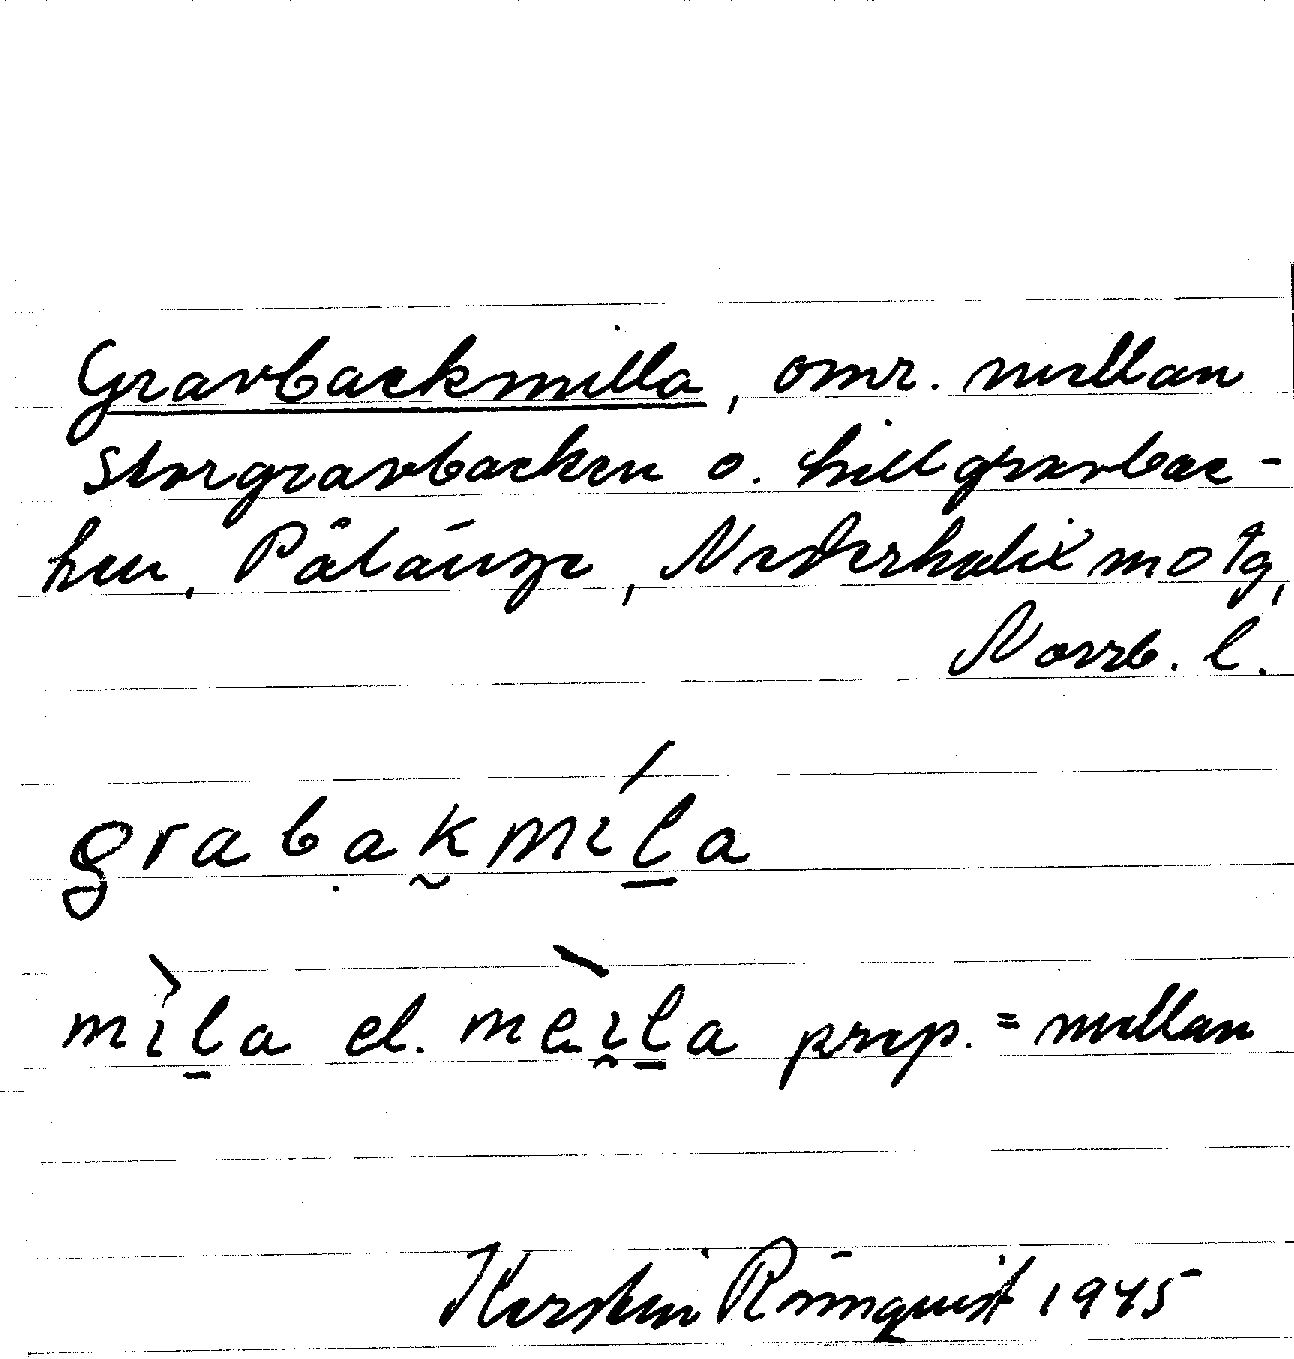 Gravbackmilla, omr. mellan
Storgravbacken o. Lillgravbac-
ken, Pålänge, Nederkalix
Norrb. l.
grabakmíla
mìla el. mèıla prep. = mellan
Kerstin Rönnquist 1945